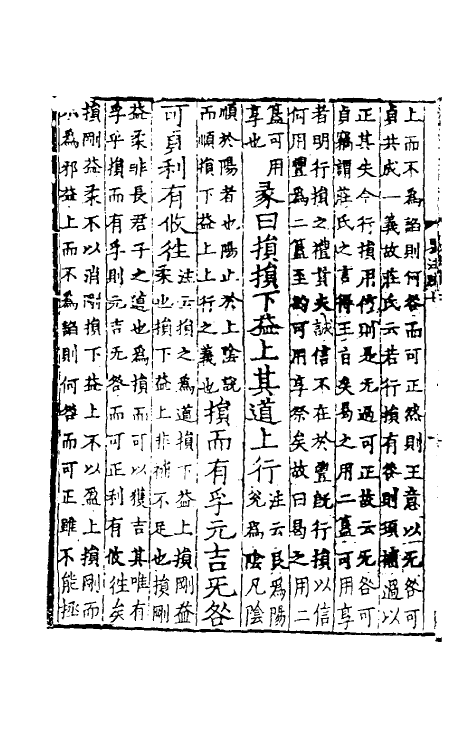 上而不為諂則何咎而可正然則王意以无咎可
貞共成一義故莊氏云若行損有咎則須補過以
正其失今行損用信則是无過可正故云无咎可
貞竊謂莊氏之言得王旨矣曷之用二簋可用享
者明行損之禮貴夫誠信不在於豐旣行損以信
何用豐為二簋至約可用享祭矣故曰曷之用二
簋可用
享也
彖曰損損下益上其道上行
注云艮為陽
兌為陰凡陰
順於陽者也陽止於上陰說
而順損下益上上行之義也
損而有孚元吉无咎
可貞利有攸往
注云損之為道損下益上損剛益
柔也損下益上非補不足也損剛
益柔非長君子之道也為損而可以獲吉其唯有
孚乎損而有孚則元吉无咎而可正利有攸往矣
損剛益柔不以消剛損下益上不以盈上損剛而
不為邪益上而不為諂則何咎而可正雖不能拯